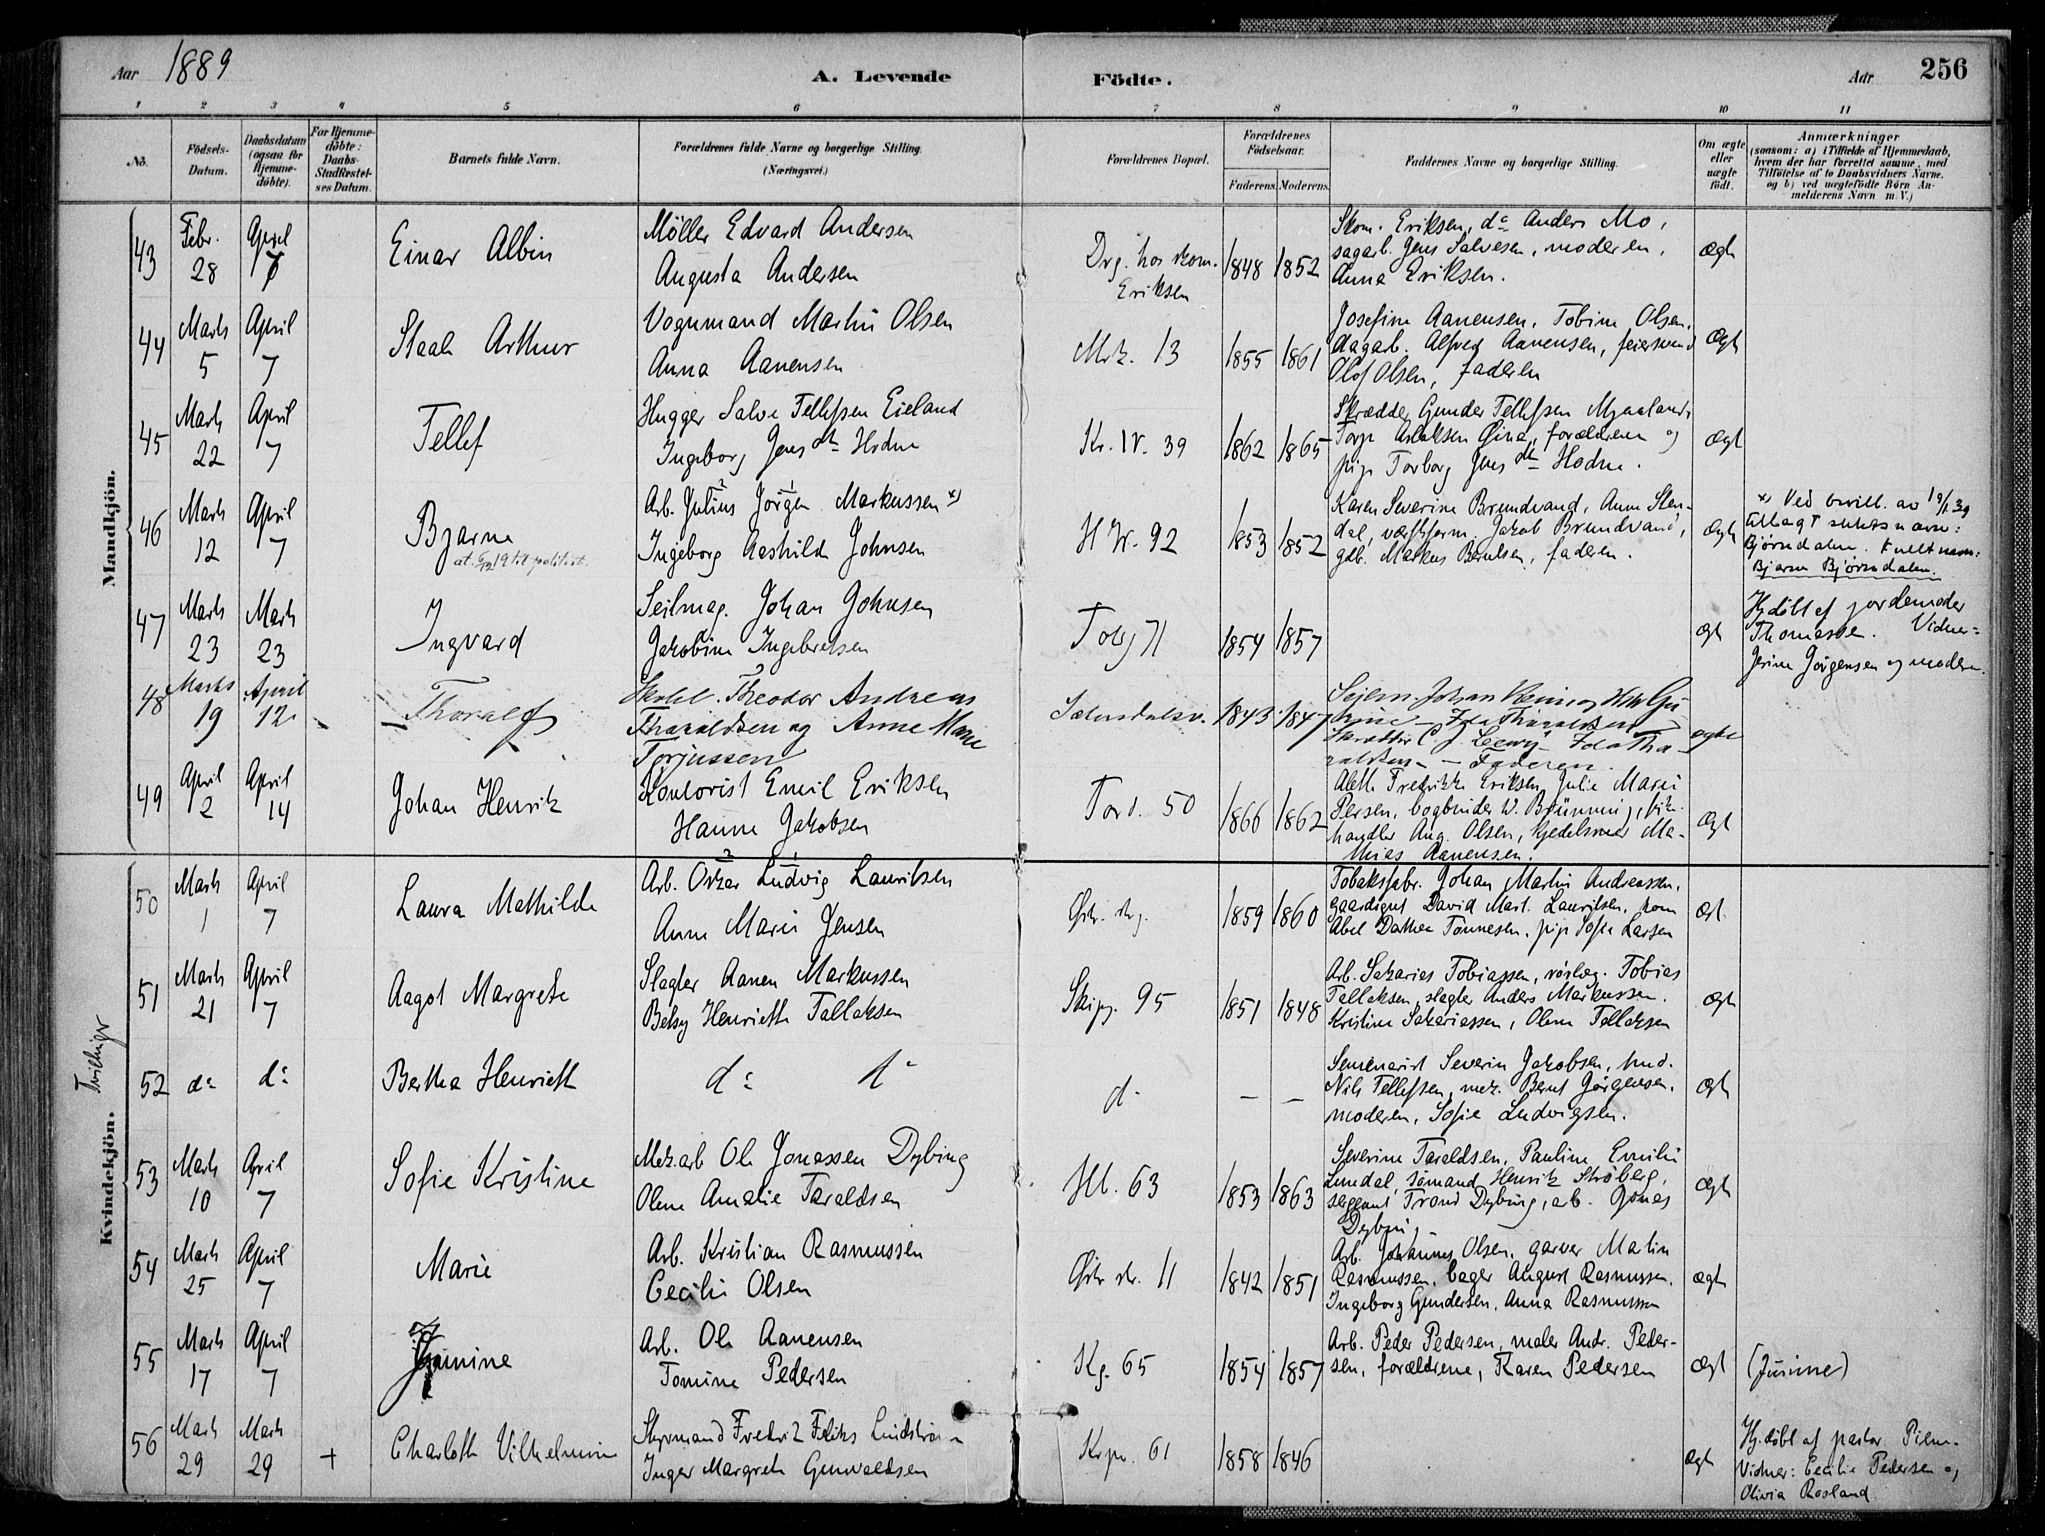 Aar 1889 A. Levende Födte. Aar 256
1 2 3 4 5 6 7 8 9 10 11
No. Födsels-Datum. Daabsdatum (ogsaa for Hjemme-döbte). For Hjemme-döbte: Daabs-Stadfæstel-ses Datum. Barnets fulde Navn. Forældrenes fulde Navne og borgerlige Stilling. (Næringsvei.) Forældrenes Bopæl. Forældrenes Födselsaar. Faderens. Moderens. Faddernes Navne og borgerlige Stilling. Om ægte eller uægte födt. Anmærkninger (saasom: a) i Tilfælde af Hjemmedaab, hvem der har forrettet samme, med Tilföielse af to Daabsvidners Navne. og b) ved uægtefödte Börn An-melderens Navn m.V.)
Mandkjön.
43 Febr. 28 April 7 Einar Albin
Möller Edvard Andersen
Augusta Andersen
Drg. hos skom. Eriksen 1848 1852
Skom. Eriksen, do Anders Mo,
sagarb. Jens Salvesen, moderen,
Anna Eriksen. Ægte
44 Marts 5 April 7 Staale Arthur
Vognmand Martin Olsen
Anna Aanensen
Mrk. 13 1855 1861
Josefine Aanensen, Tobine Olsen,
dagarb. Alfred Aanensen, feiersvend
Olof Olsen, faderen Ægte
45 Marts 22 April 7 Tellef
Hugger Salve Tellefsen Eieland
Ingeborg Jensdtr Hodne
Kr. IV. 39 1862 1865
Skrædder Gunder Tellefsen Mjaaland,
Torje Aslaksen Øina, forældrene og
pige Torborg Jensdtr Hodne. Ægte
46 Marts 12 April 7 Bjarne
Arb. Julius Jörgen Markussen x)
Ingeborg Aashilde Johnsen
H W. 92 1853 1852
Karen Severine Brundvand, Anne Sten-
dal, værftsform. Jakob Brundvand,
gdb. Markus Berulsen, faderen. Ægte
x) Ved bevill. av 19/1 39
tillagt slektsnavn:
Bjørndalen. Fullt navn:
Bjarne Bjørndalen.
47 Marts 23 Marts 23 Ingvard
Seilmag. Johan Johnsen
Jakobine Ingebretsen
Tobg 71 1854 1857 Ægt
Hj.döbt af jordemoder
Thomassen. Vidner:
Jerine Jörgensen og moderen
48 Marts 19 April 12 Thoralf
Theodor Andreas
Tharaldsen og Anne Marie
Terjussen
Sætersdalsv. 1843 1847
Faderen. ægte
49 April 2 April 14 Johan Henrik
Kontorist Emil Eriksen
Hanne Jakobsen
Tord. 50 1866 1862
Aleth Fredrikke Eriksen, Julie Marie
Persen, bogbinder W. Brünning,
handler Aug. Olsen, Gjedelsmer Ma-
thias Aanensen. Ægt
Kvindekjön. Tvillinger
50 Marts 1 April 7 Laura Mathilde
Arb. Oskar Ludvig Lauritsen
Anne Marie Jensen
Østr. strg. 1859 1860
Tobaksfabr. Johan Martin Andreassen,
gaardgut David Mart. Lauritsen, kone
Abel Dathea Tönnesen, pige Sofie Larsen Ægt.
51 Marts 21 April 7 Aagot Margrete
Slagter Aanen Markussen
Betsy Henriette Tallaksen
Skipg. 95 1851 1848
Arb. Sakarias Tobiassen, rörlæg. Tobias
Tallaksen, slagter Anders Markussen.
Kristine Sakariassen, Olene Tallaksen Ægte
52 do do Bertha Henriette
do do
d. – –
Semenarist Severin Jakobsen, smed.
Nils Tellefsen, mek. Bernt Jörgensen,
moderen, Sofie Ludvigsen. Ægte
53 Marts 10 April 7 Sofie Kristine
Mek.arb Ole Jonassen Dybing
Olene Amalie Taraldsen
Hl. 63 1853 1863
Severine Taraldsen, Pauline Emilie
Lundal, sömand Henrik Ströberg,
sergeant Trond Dybing, arb. Jonas
Dybing. Ægte
54 Marts 25 April 7 Marie
Arb. Kristian Rasmussen
Cecilie Olsen
Østr str. 11 1842 1851
Arb. Johannes Olsen, garver Martin
Rasmussen, bager August Rasmussen,
Ingeborg Gundersen, Anna Rasmussen Ægte
55 Marts 17 April 7 Junine
Arb. Ole Aanensen
Tomine Pedersen
Kg. 65 1854 1857
Arb. Peder Pedersen, maler Andr. Peder-
sen, forældrene, Karen Pedersen Ægt (Junine)
56 Marts 29 Marts 29 + Charlotte Vilhelmine
Styrmand Fredrik Feliks Lindström
Inger Margrete Gunvaldsen
Krpr. 61 1858 1846 Ægte
Hj.döbt af pastor Piene.
Vidner: Cecilie Pedersen og
Olivia Rosland.